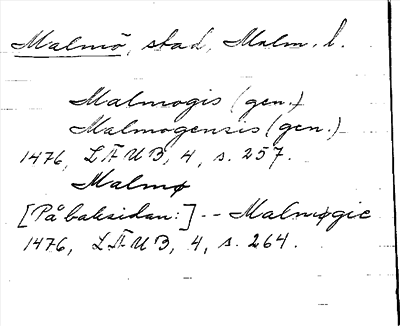 Malmö, stad, Malm. l.
Malmogis (gen.)
Malmogensis (gen.)
1476, LÄUB, 4, s. 257.
Malmø
[På baksidan:] -- Malmøgie
1476, LÄUB, 4, s. 264.